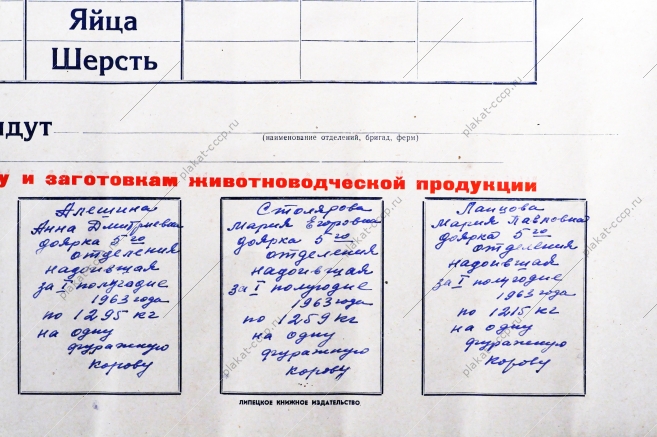 Яйца
Шерсть
идут
(наименование отделений, бригад, ферм)
у и заготовкам животноводческой продукции
Алешина
Анна Дмитриевна
доярка 5го
отделения
надоившая
за I полугодие
1963 года
по 1295 кг
на одну
фуражную
корову
Столярова
Мария Егоровна
доярка 5го
отделения
надоившая
за I полугодие
1963 года
по 1259 кг
на одну
фуражную
корову
Мария Павловна
доярка 5го
отделения
надоившая
за I полугодие
1963 года
по 1215 кг
на одну
фуражную
корову
ЛИПЕЦКОЕ КНИЖНОЕ ИЗДАТЕЛЬСТВО
plakat-cccp.ru